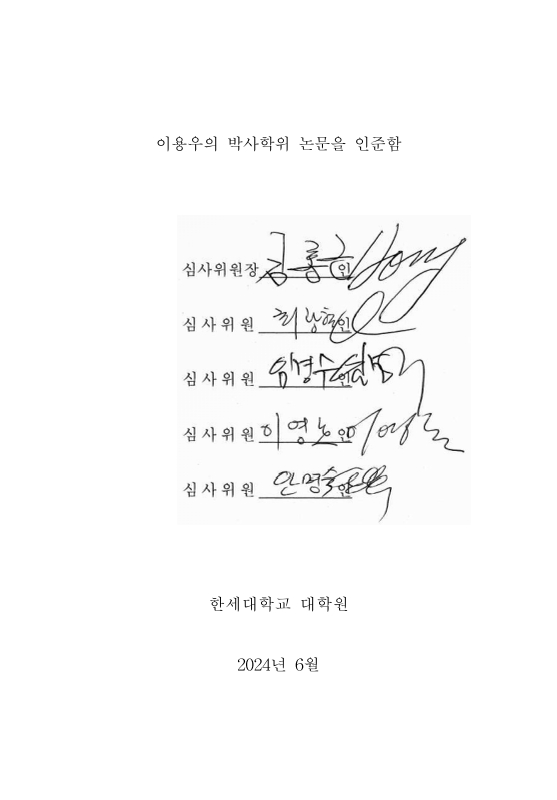 이용우의 박사학위 논문을 인준함
심사위원장 인
심사위원 최광현인
심사위원 임경수인
심사위원 이영노인
심사위원 안명숙인
한세대학교 대학원
2024년 6월